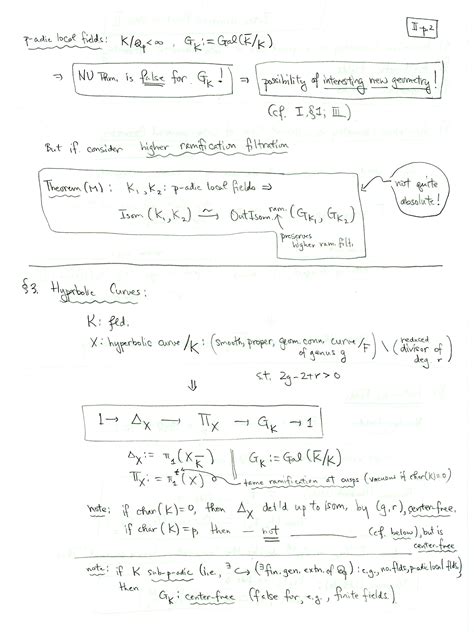 II-p.2
p-adic local fields: K/Qp<∞, G_K := Gal(K̄/K)
⇒ NU Thm. is false for G_K! ⇒ possibility of interesting new geometry!
(cf. I, §1; III)
But if consider higher ramification filtration
Theorem (M): K₁, K₂: p-adic local fields ⇒
Isom(K₁, K₂) ⥲ OutIsom^ram.(G_K₁, G_K₂)
preserves
higher ram. filt.
not quite
absolute!
§3. Hyperbolic Curves:
K: fld.
X: hyperbolic curve/K: (smooth, proper, geom. conn. curve/F of genus g) \ (reduced divisor of deg. r)
s.t. 2g-2+r>0
⇓
1 → Δ_X → Π_X → G_K → 1
Δ_X := π₁(X_K̄) G_K := Gal(K̄/K)
Π_X := π₁(X)
tame ramification at cusps (vacuous if char(K)=0)
note: if char(K)=0, then Δ_X det'd up to isom. by (g,r), center-free.
if char(K)=p, then — not — (cf. below), but is
center-free
note: if K sub-p-adic (i.e., ∃ ↪ (∃ fin. gen. extn. of Qp): e.g., no. flds, p-adic local flds)
then
G_K: center-free (false for, e.g., finite fields.)